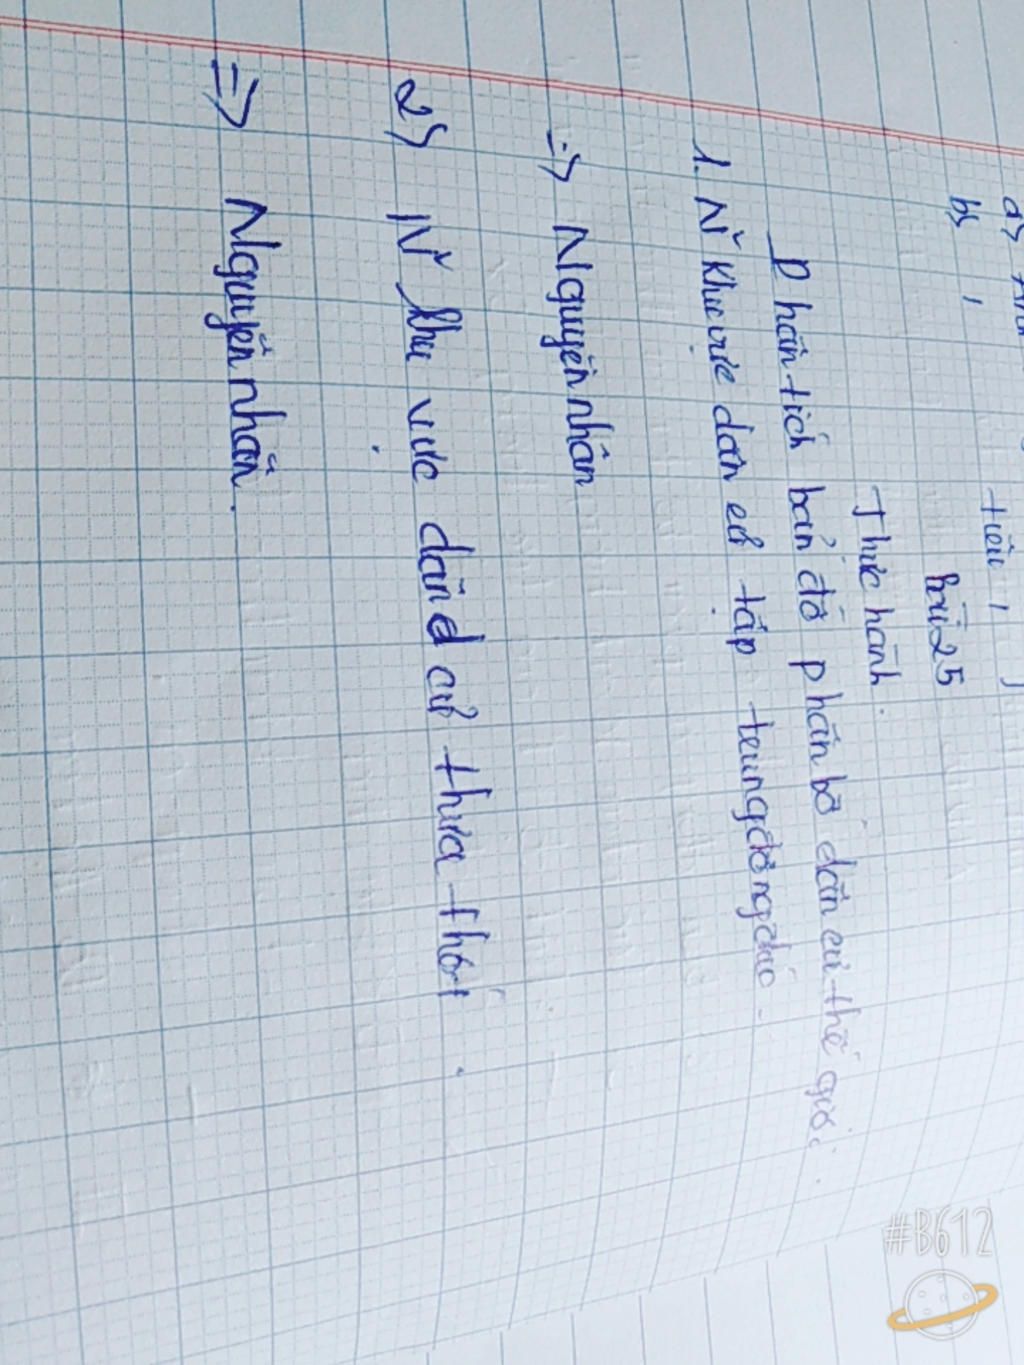 a)
b)
tiêu
Bài 25
Thực hành.
Phân tích bản đồ phân bố dân cư thế giới.
1. N~ khu vực dân cư tập trung đông đúc.
=> Nguyên nhân
2) N~ khu vực dân cư thưa thớt.
=> Nguyên nhân.
#B612